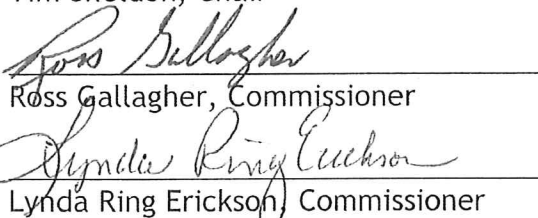 Tim Sheldon, Chair
Ross Gallagher
Ross Gallagher, Commissioner
Lynda Ring Erickson
Lynda Ring Erickson, Commissioner